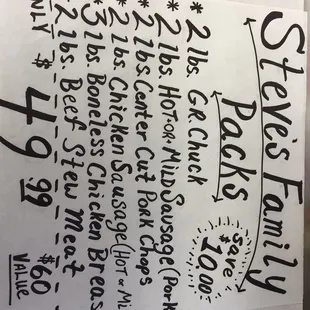 Steve's Family
Packs
Save
$
10.00
* 2 lbs. GR. Chuck
* 2 lbs. HOT-OR-MILD Sausage (Pork
* 2 lbs. Center Cut Pork Chops
* 2 lbs. Chicken Sausage (HOT or Mi
* 3 lbs. Boneless Chicken Breas
* 2 lbs. Beef Stew Meat
NLY $ 49.99
$60
VALUE